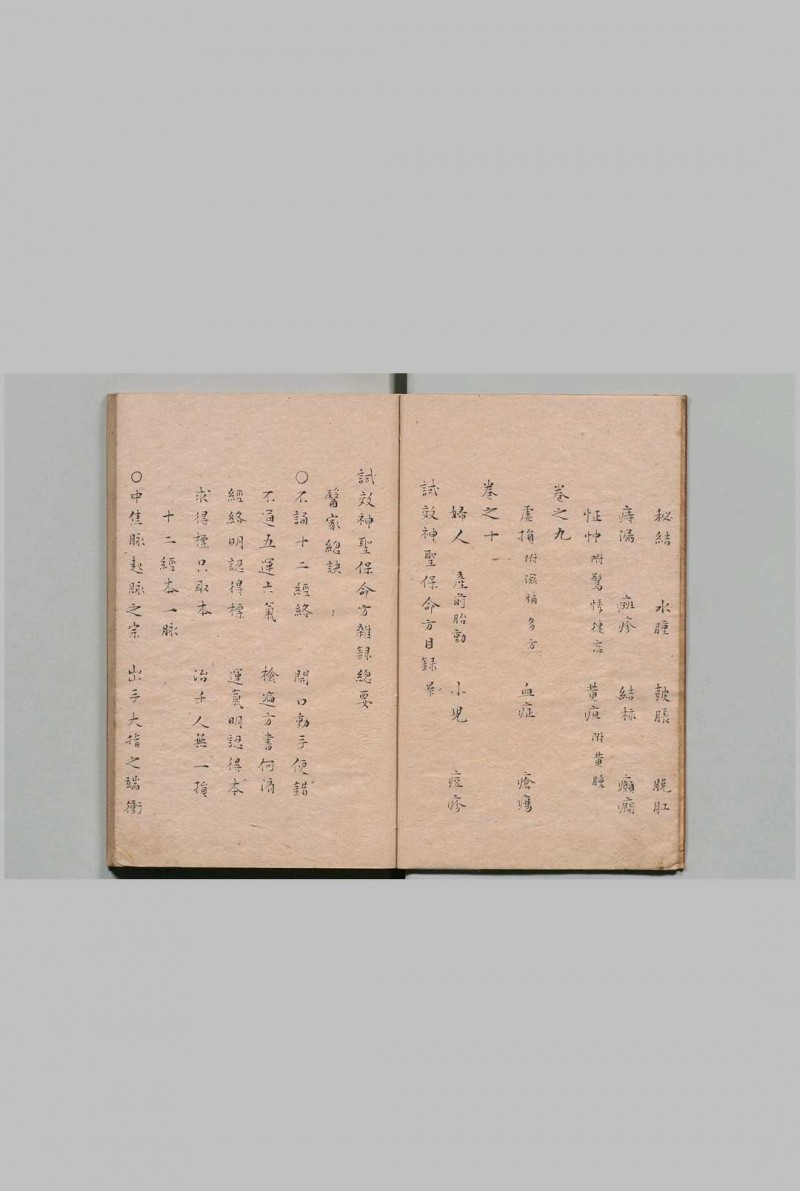 秘結 水腫 皷脹 脫肛
痔漏 癍疹 結核 癲癇
怔忡 附驚悸健忘 黄疸 附黄腫
卷之九
虚損 附滋補多方 血症 瘡瘍
卷之十
婦人 產前胎動 小児 痘疹
試效神聖保命方目録畢
試效神聖保命方雜録總要
醫家總訣
〇不誦十二經絡 開口動手便錯
不通五運六氣 檢遍方書何済
經絡明認得標 運氣明認得本
求得標只取本 治千人無一損
十二經本一脉
〇中焦脉起脉之宗 出手大指之端衝